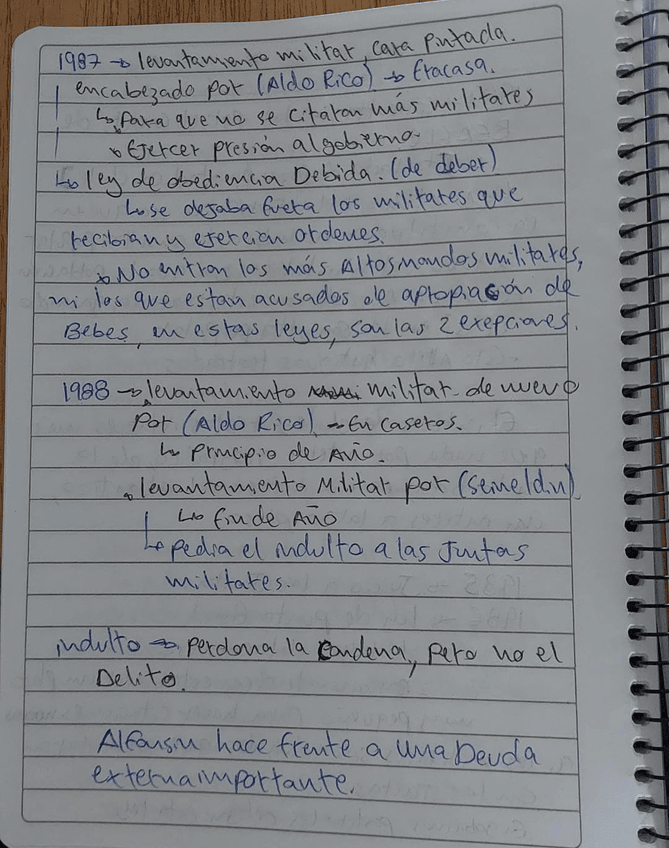 1987 → levantamiento militar, cara pintada.
encabezado por (Aldo Rico) → fracasa.
↳ • Para que no se citaran más militares
• Ejercer presión al gobierno.
↳ ley de obediencia Debida. (de deber)
↳ se dejaba fuera los militares que
recibian y ejercian ordenes.
• No entran los más Altos mandos militares,
ni los que estan acusados de apropiación de
Bebes, en estas leyes, son las 2 exepciones.
1988 → • levantamiento militar de nuevo
Por (Aldo Rico) → En Caseros.
↳ Principio de Año.
• levantamiento Militar por (Seineldin)
↳ fin de Año
↳ pedia el indulto a las Juntas
militares.
indulto → Perdona la condena, pero no el
Delito.
Alfonsin hace frente a una Deuda
externa importante.